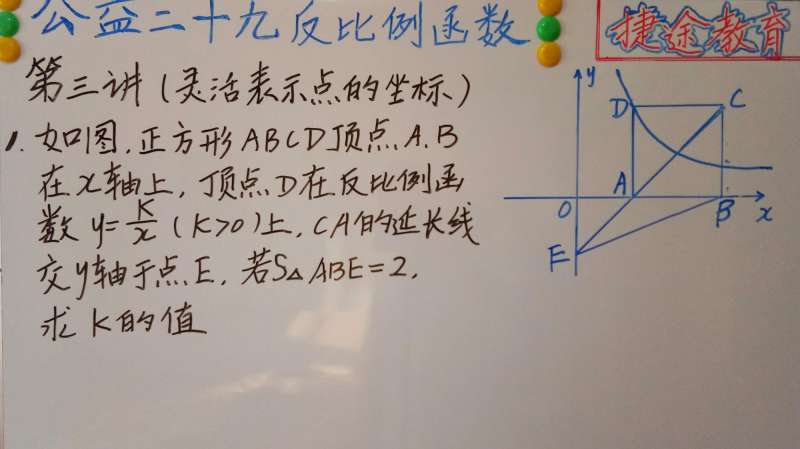 公益二十九反比例函数
捷途教育
第三讲(灵活表示点的坐标)
1. 如图,正方形ABCD顶点A.B
在x轴上,顶点D在反比例函
数 y=K/x (K>0)上,CA的延长线
交y轴于点E,若S△ABE=2,
求K的值
y
D
C
A
O
B
x
E